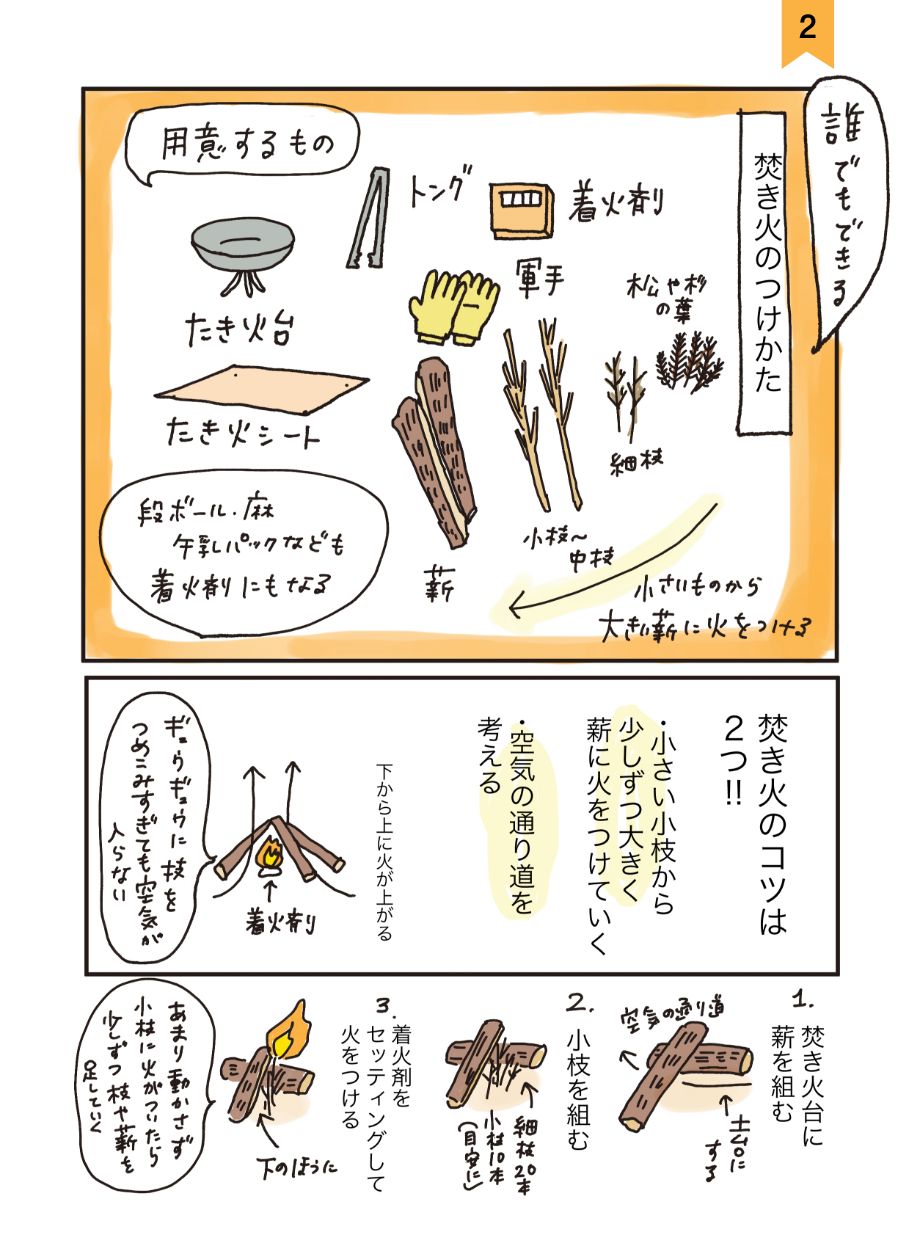 2
誰でもできる
焚き火のつけかた
用意するもの
トング
着火剤
たき火台
軍手
松や杉
の葉
たき火シート
細枝
小枝〜
中枝
薪
段ボール・麻
牛乳パックなども
着火剤にもなる
小さいものから
大きい薪に火をつける
焚き火のコツは
2つ!!
・小さい小枝から
少しずつ大きく
薪に火をつけていく
・空気の通り道を
考える
下から上に火が上がる
着火剤
ギュウギュウに枝を
つめこみすぎても空気が
入らない
1.
焚き火台に
薪を組む
空気の通り道
土台に
する
2.
小枝を組む
細枝20本
小枝10本
(目安に)
3.
着火剤を
セッティングして
火をつける
下のほうに
あまり動かさず
小枝に火がついたら
少しずつ枝や薪を
足していく